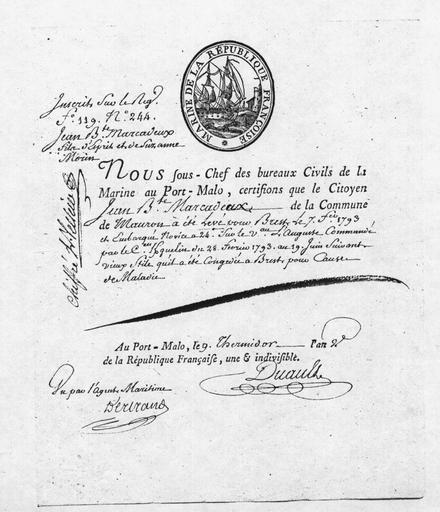 MARINE DE LA RÉPUBLIQUE FRANÇOISE
Inscrit Sur le Reg.
f.° 119. N.° 244.
Jean B.te Marcadeux
fils d'Esprit et de Suzanne
Morin
Chiffré
NOUS sous-Chef des bureaux Civils de la
Marine au Port-Malo, certifions que le Citoyen
Jean B.te Marcadeux, de la Commune
de Mauron a été levé pour Brest, le 7. F.er 1793
et Embarqué Novice a 24.# Sur le V.au L'Auguste Commandé
par le C.en Kguelin du 28. fevrier 1793. au 19. Juin Suivant
vieux Stile qu'il a été Congedié a Brest, pour Cause
de Maladie
Au Port-Malo, le 9. Thermidor l'an 2.e
de la République Française, une & indivisible.
Vu par l'Agent Maritime
Bertrand
Duault